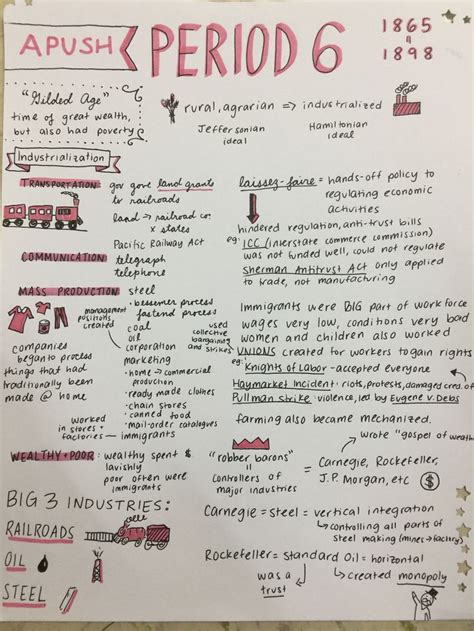 APUSH
PERIOD 6
1865
1898
"Gilded Age"
time of great wealth,
but also had poverty
rural, agrarian ⇒ industrialized
Jeffersonian ideal
Hamiltonian ideal
Industrialization
TRANSPORTATION
gov gave land grants
to railroads
land → railroad co.
x states
Pacific Railway Act
COMMUNICATION
telegraph
telephone
MASS PRODUCTION
steel
• bessemer process
management positions created
coal
oil
corporation
used collective bargaining and strikes
marketing
• home → commercial production
• ready made clothes
• chain stores
• canned food
• mail-order catalogues
companies
began to process
things that had
traditionally been
made @ home
worked in stores + factories
immigrants
WEALTHY + POOR
wealthy spent $
lavishly
poor often were
immigrants
BIG 3 INDUSTRIES:
RAILROADS
OIL
STEEL
laissez-faire = hands-off policy to
regulating economic
activities
hindered regulation, anti-trust bills
eg: ICC (interstate commerce commission)
was not funded well, could not regulate
Sherman Antitrust Act only applied
to trade, not manufacturing
Immigrants were BIG part of workforce
wages very low, conditions very bad
women and children also worked
UNIONS created for workers to gain rights
eg: Knights of Labor - accepted everyone
Haymarket Incident: riots, protests, damaged cred. of
Pullman strike: violence, led by Eugene v. Debs
farming also became mechanized.
wrote "gospel of wealth
"robber barons"
=
controllers of
major industries
Carnegie, Rockefeller,
J.P. Morgan, etc
$
Carnegie = steel = vertical integration
controlling all parts of
steel making (mines → factory)
Rockefeller = standard Oil = horizontal
was a trust
created monopoly